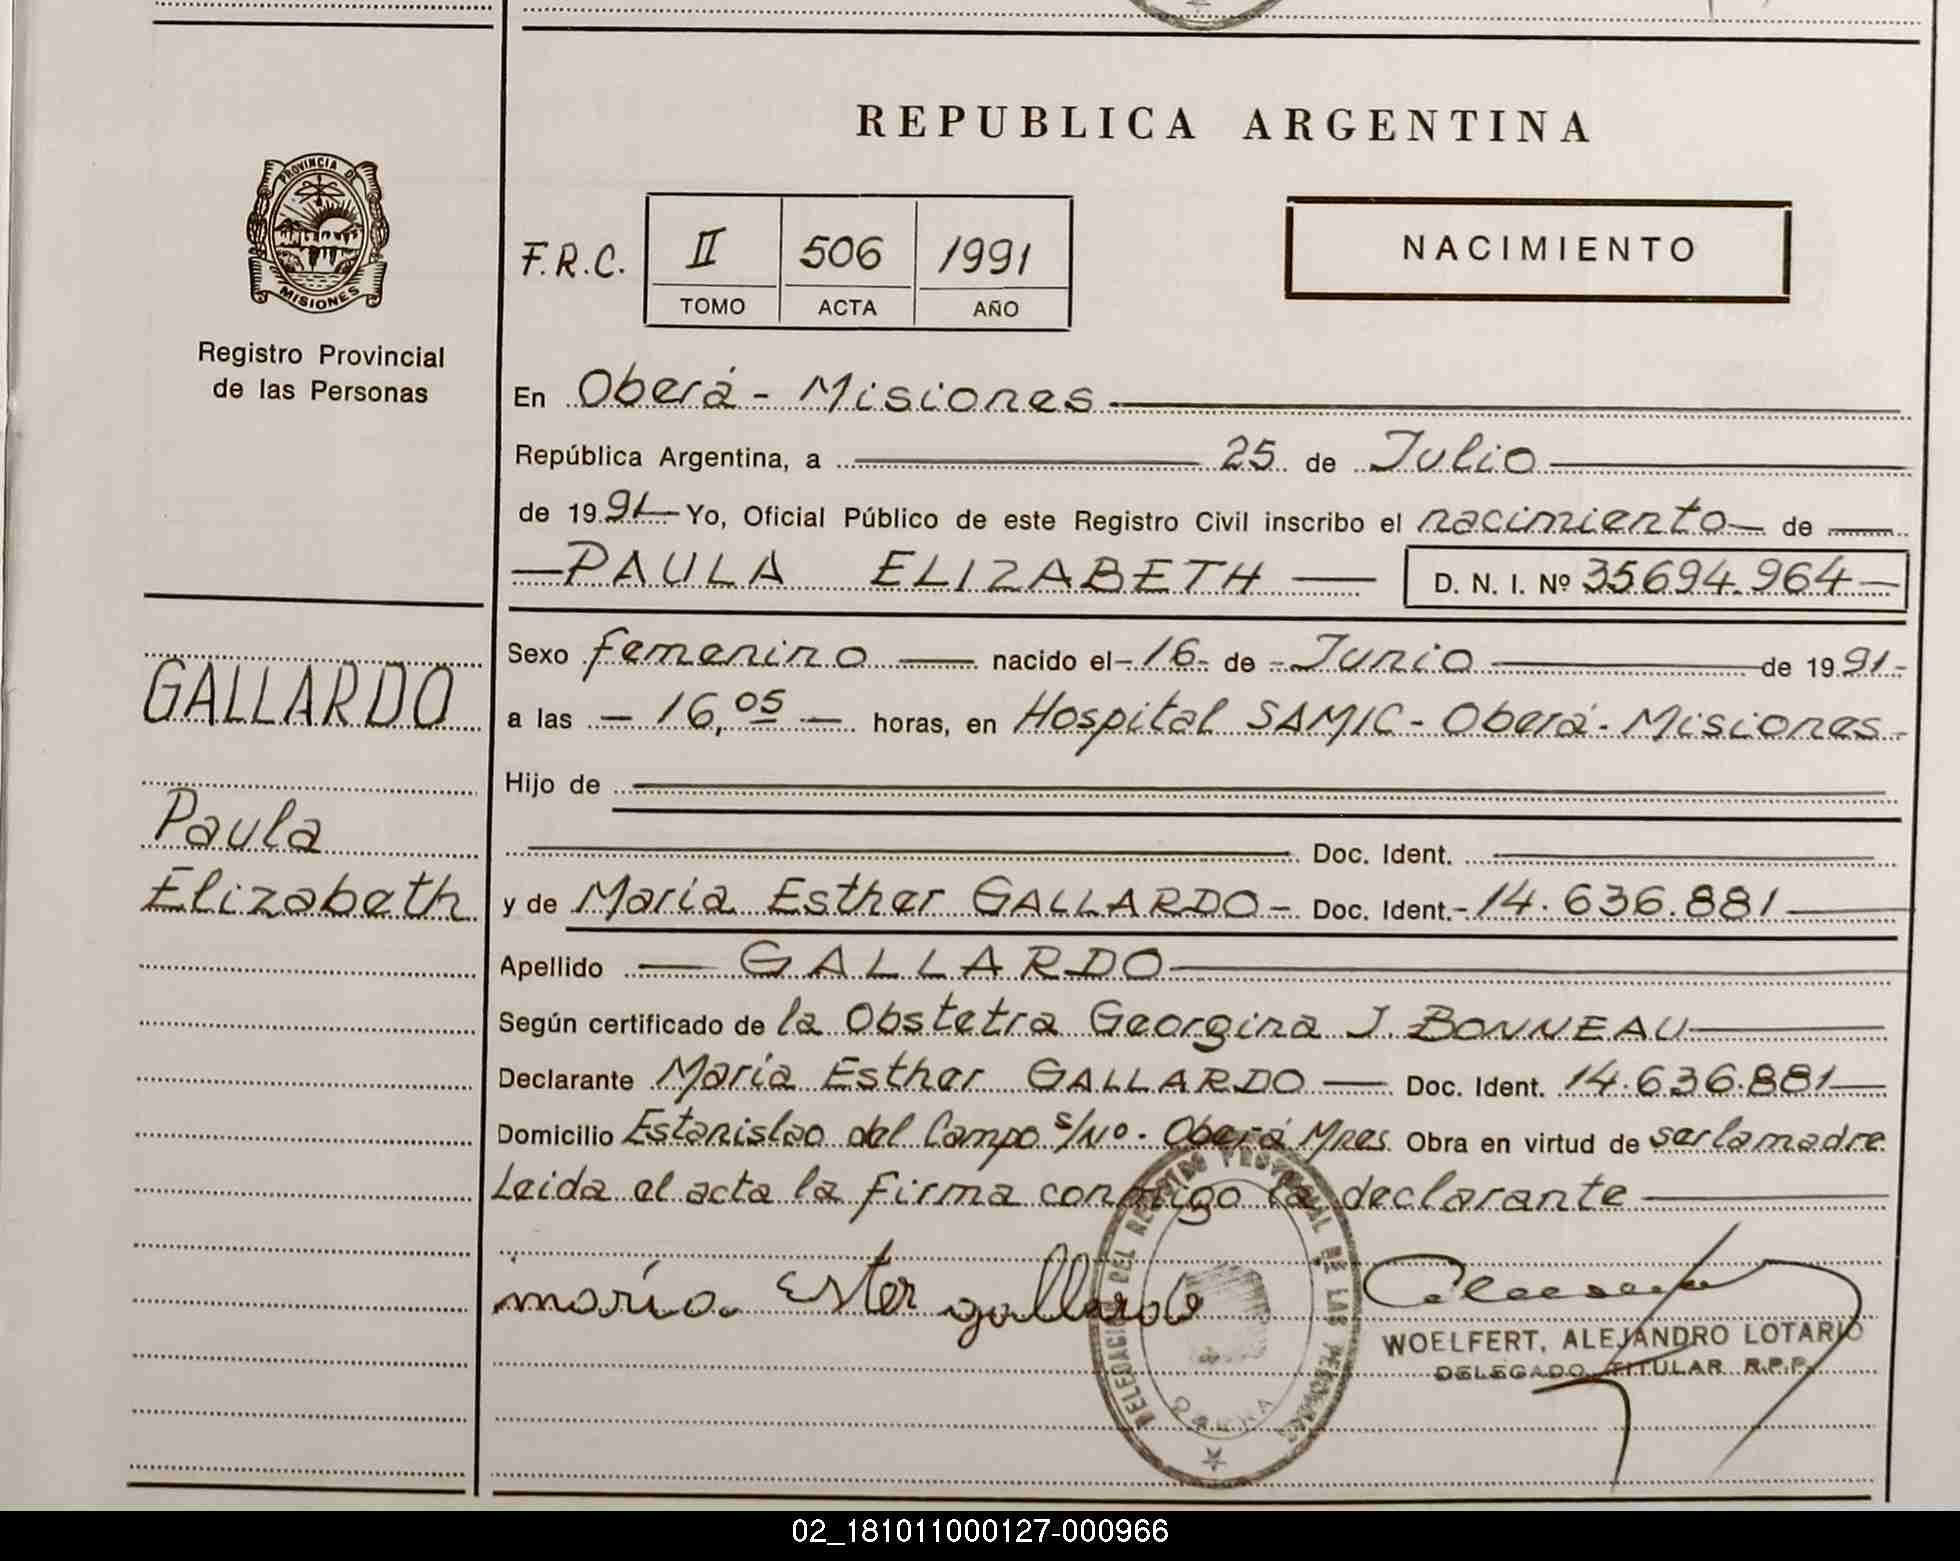 REPUBLICA ARGENTINA
PROVINCIA DE
MISIONES
Registro Provincial
de las Personas
F.R.C.
II 506 1991
TOMO ACTA AÑO
NACIMIENTO
En Oberá - Misiones
República Argentina, a 25 de Julio
de 1991 Yo, Oficial Público de este Registro Civil inscribo el nacimiento de
PAULA ELIZABETH D. N. I. Nº 35694.964
GALLARDO
Paula
Elizabeth
Sexo femenino nacido el 16 de Junio de 1991
a las 16,05 horas, en Hospital SAMIC - Oberá - Misiones
Hijo de
Doc. Ident.
y de María Esther GALLARDO Doc. Ident. 14.636.881
Apellido GALLARDO
Según certificado de la Obstetra Georgina J. BONNEAU
Declarante María Esther GALLARDO Doc. Ident. 14.636.881
Domicilio Estanislao del Campo s/Nº - Oberá Mnes Obra en virtud de ser la madre
Leida el acta la firma conmigo la declarante
maría Ester gallardo
DELEGACION DEL REGISTRO PROVINCIAL DE LAS PERSONAS
OBERA
WOELFERT, ALEJANDRO LOTARIO
DELEGADO TITULAR R.P.P.
02_181011000127-000966